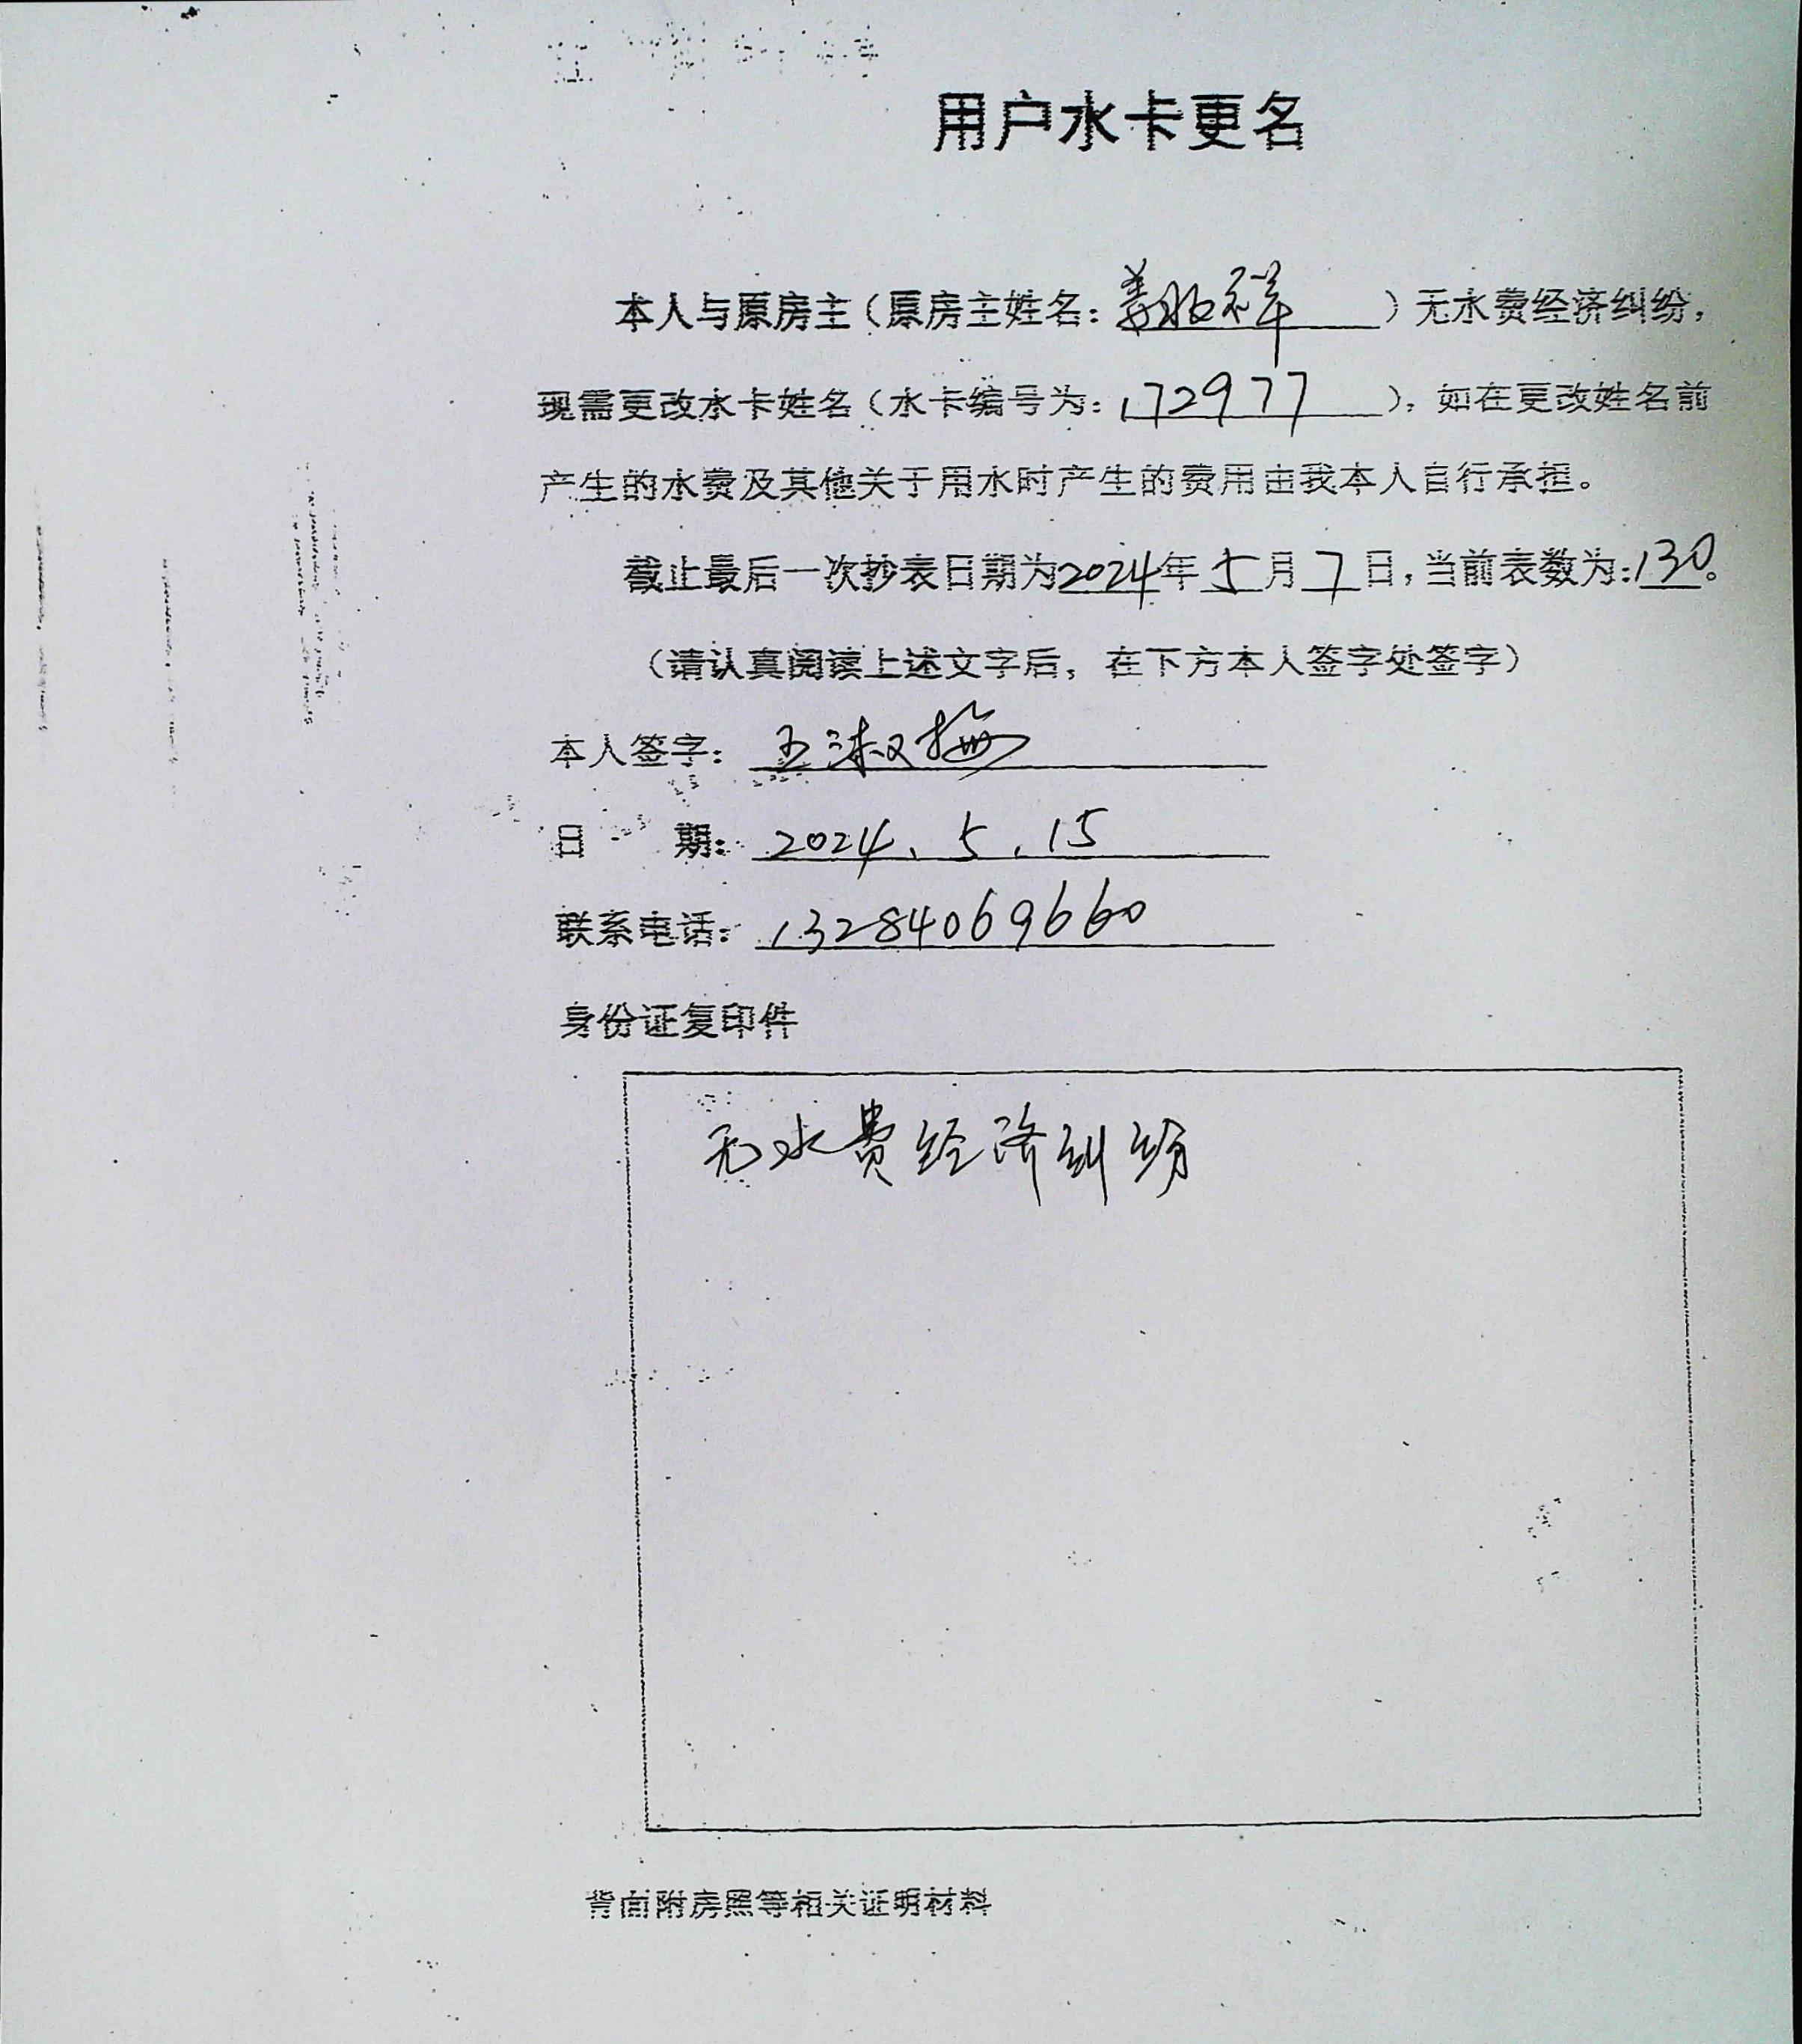 用户水卡更名
本人与原房主（原房主姓名：姜 祥）无水费经济纠纷，
现需更改水卡姓名（水卡编号为：172977），如在更改姓名前
产生的水费及其他关于用水时产生的费用由我本人自行承担。
截止最后一次抄表日期为2024年5月7日，当前表数为：130。
（请认真阅读上述文字后，在下方本人签字处签字）
本人签字：王淑梅
日 期：2024.5.15
联系电话：13284069660
身份证复印件
无水费经济纠纷
背面附房照等相关证明材料